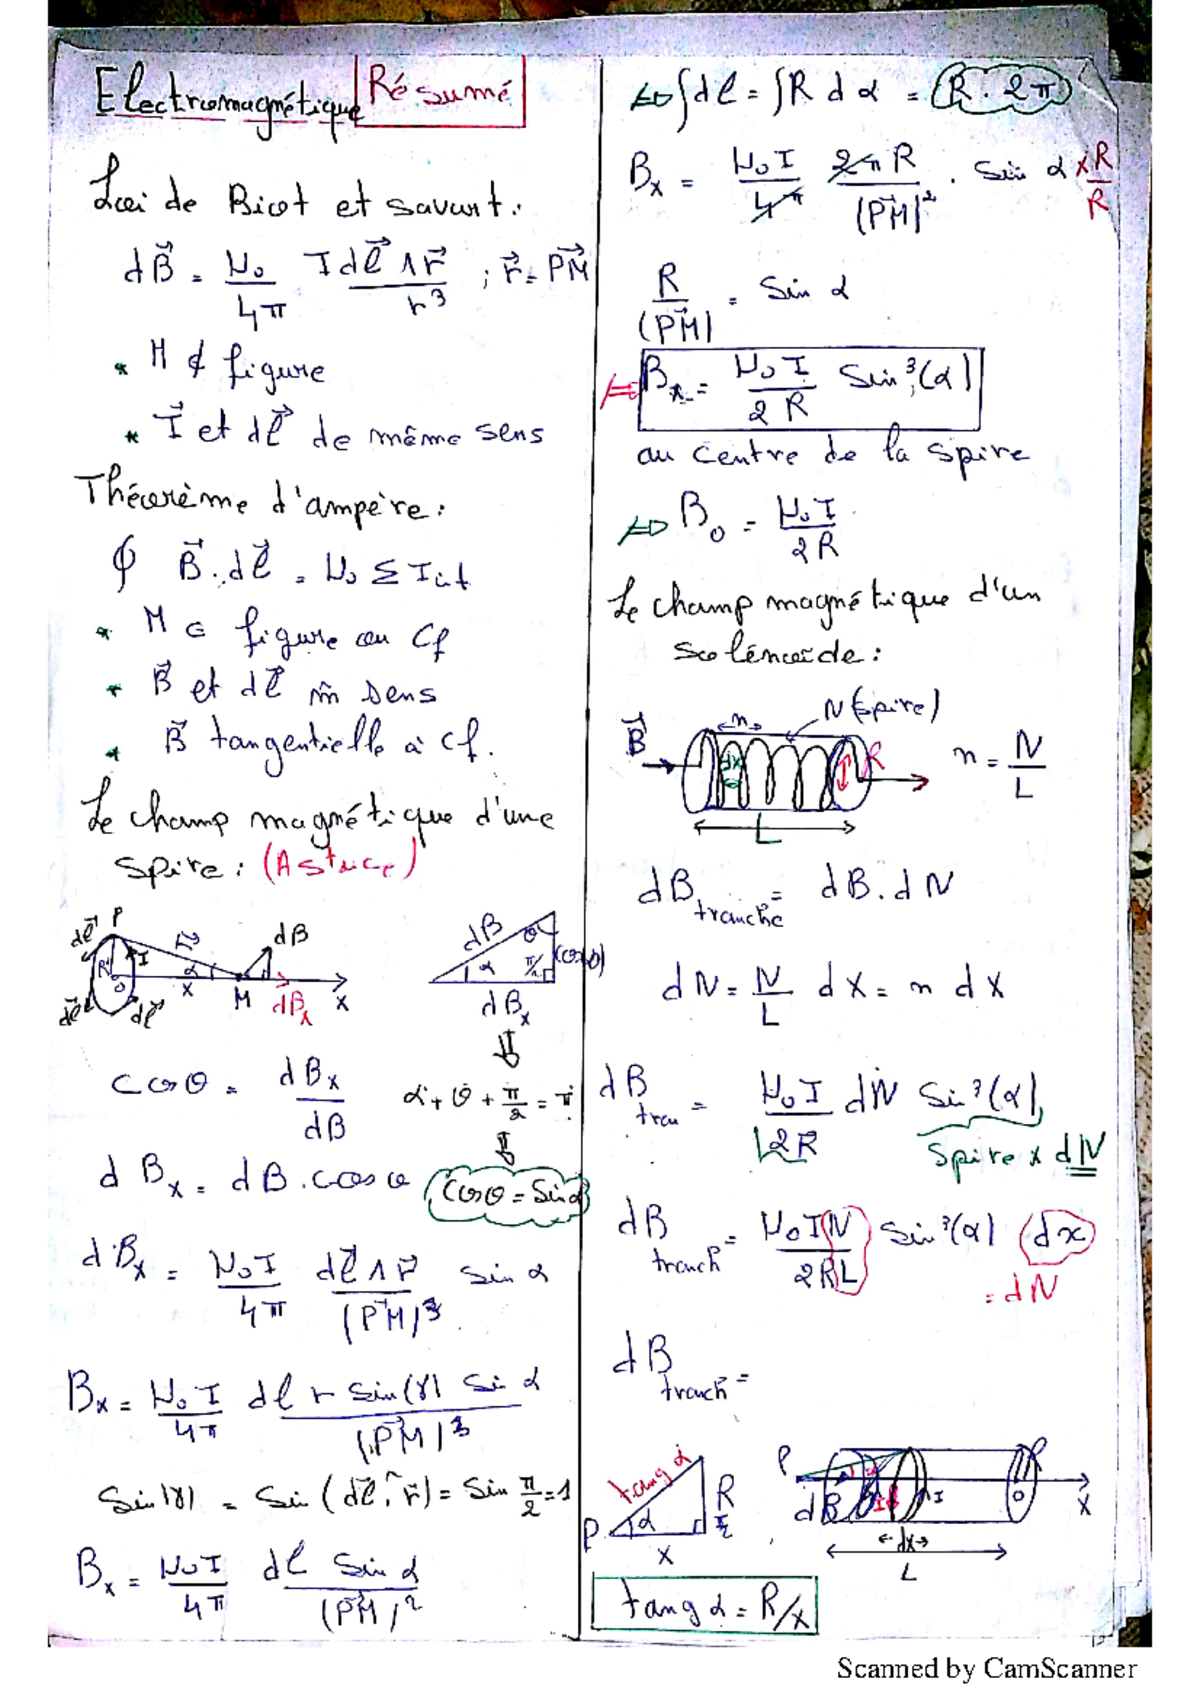 Electromagnétique Résumé
Loi de Biot et savart :
dB⃗ = μ₀/4π I dl⃗ ∧ r⃗ / r³ ; r⃗ = PM⃗
* M ∉ figure
* I⃗ et dl⃗ de même sens
Théorème d'ampère :
∮ B⃗.dl⃗ = μ₀ Σ Iint
* M ∈ figure ou Cf
* B⃗ et dl⃗ m̂ sens
* B⃗ tangentielle à Cf.
Le champ magnétique d'une
spire : (Astuce)
dl⃗ P r⃗ dB
R I α
O x M dBx x
dl⃗ dl⃗
dB θ (cos θ)
α π/2
dBx
cos θ = dBx/dB
α + θ + π/2 = π
dBx = dB . cos θ
cos θ = Sin α
dBx = μ₀ I/4π dl⃗ ∧ r⃗/(PM⃗)³ sin α
Bx = μ₀ I/4π dl r sin(γ) sin α/(PM⃗)³
Sin(γ) = Sin (dl⃗, r⃗) = Sin π/2 = 1
Bx = μ₀ I/4π dl Sin α/(PM)²
⇔ ∫dl = ∫R dα = R . 2π
Bx = μ₀ I/4π 2π R/(PM⃗)² . Sin α × R/R
R/(PM⃗) = Sin α
⇒ Bx = μ₀ I/2 R Sin³(α)
au centre de la spire
⇔ B₀ = μ₀ I/2R
Le champ magnétique d'un
solénoïde :
B⃗ n N (spire)
dx I R
L
n = N/L
dB tranche = dB . dN
dN = N/L dx = n dx
dB tran = μ₀ I/2R dN Sin³(α)
Spire × dN
dB tranch = μ₀ I N/2RL Sin³(α) (dx)
= dN
dB tranch =
tang α
P α x R π/2
P dB I I R O x
dx
L
tang α = R/x
Scanned by CamScanner